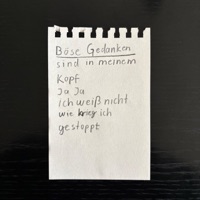 Böse Gedanken
sind in meinem
Kopf
Ja Ja
Ich weiß nicht
wie krieg ich
gestoppt